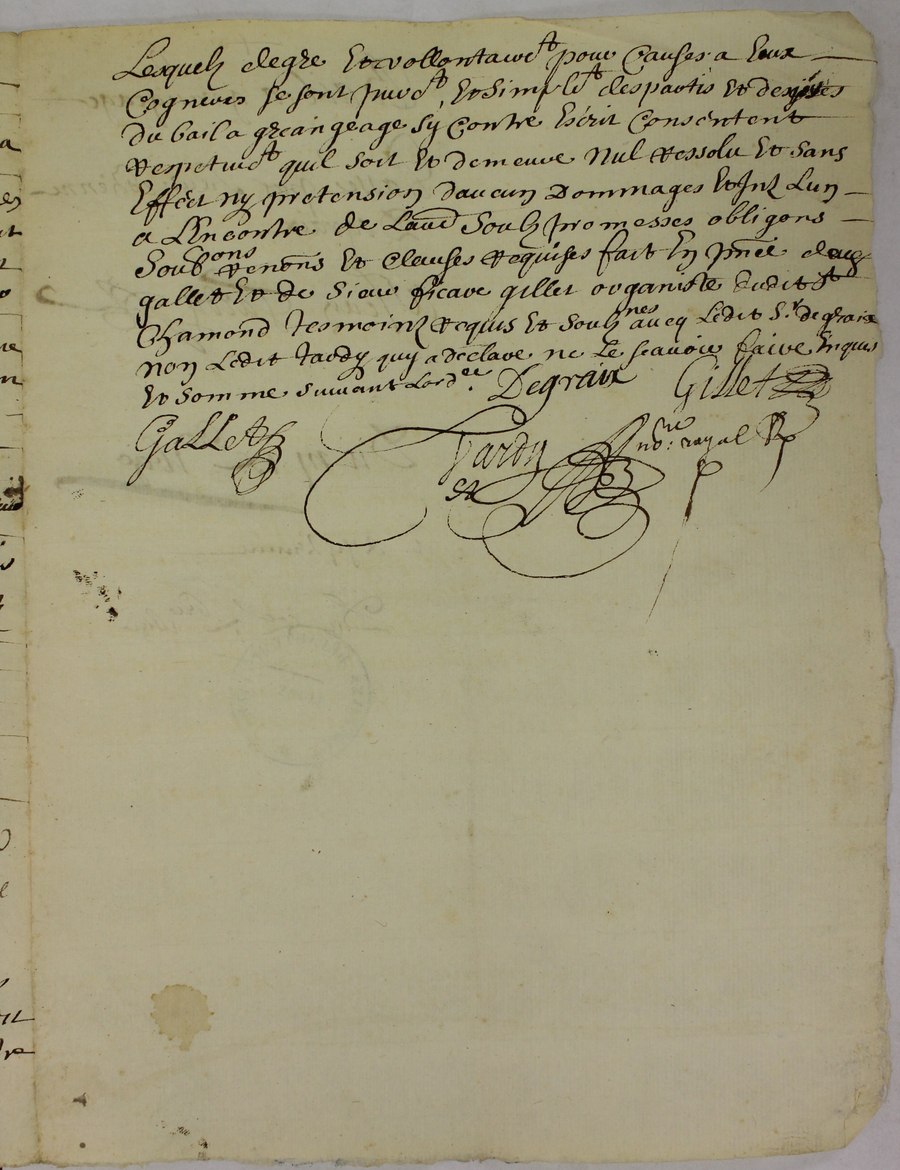 Lesquelz degre Et vollontairet pour Causes a Eux
Cogneues se sont puret Et Simplet despartis Et desistes
du bail a grangeage sy Contre Escrit Consentent
Respetuet quil soit Et demeure Nul Ressolu Et Sans
Effect ny pretension daucun Dommages Et Intz Lun
a LEncontre de Laud Soubz promesses obligons
Soubons Renons Et Clauses Requises fait En pnce de
gallet Et de Sieur gillet organiste dudit St
Chamond Tesmoinz Requis Et Soubznes avecq Ledit Sr. degraix
non Ledit tardy quy a declare ne Le scavoir faire Enquis
Et somme suivant Lordee. Degraix Gillet
GaLLet Tardy nore. royal R